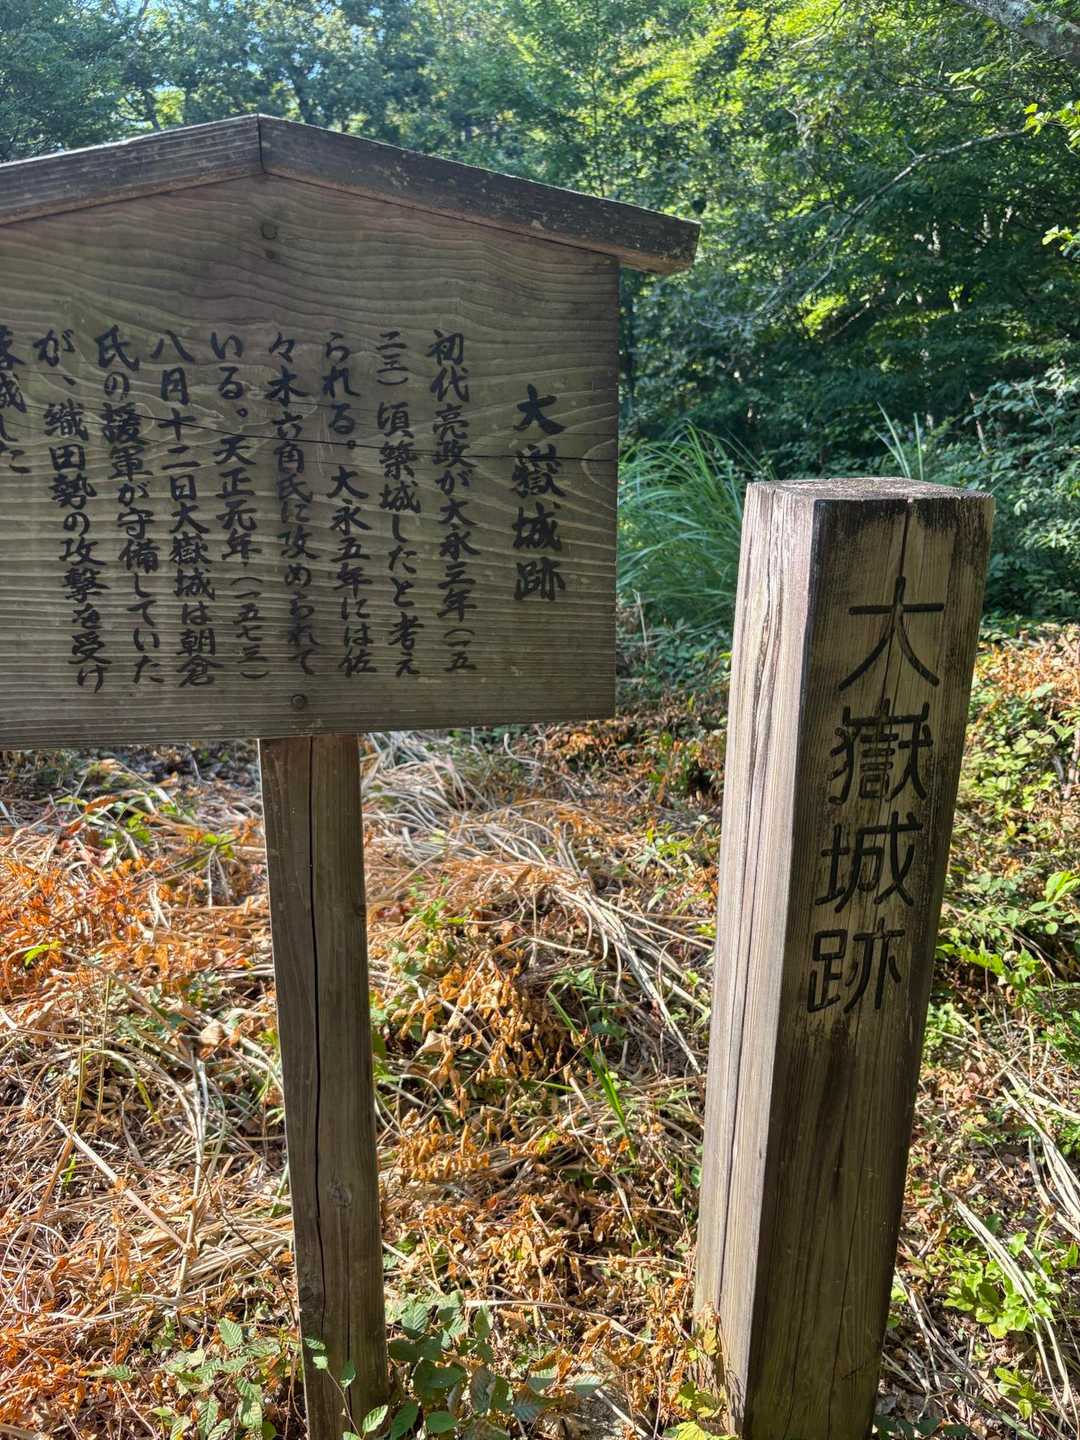 大嶽城跡
初代亮政が大永三年(一五
二三)頃築城したと考え
られる。大永五年には佐
々木六角氏に攻められて
いる。天正元年(一五七三)
八月十二日大嶽城は朝倉
氏の援軍が守備していた
が、織田勢の攻撃を受け
落城した
大嶽城跡